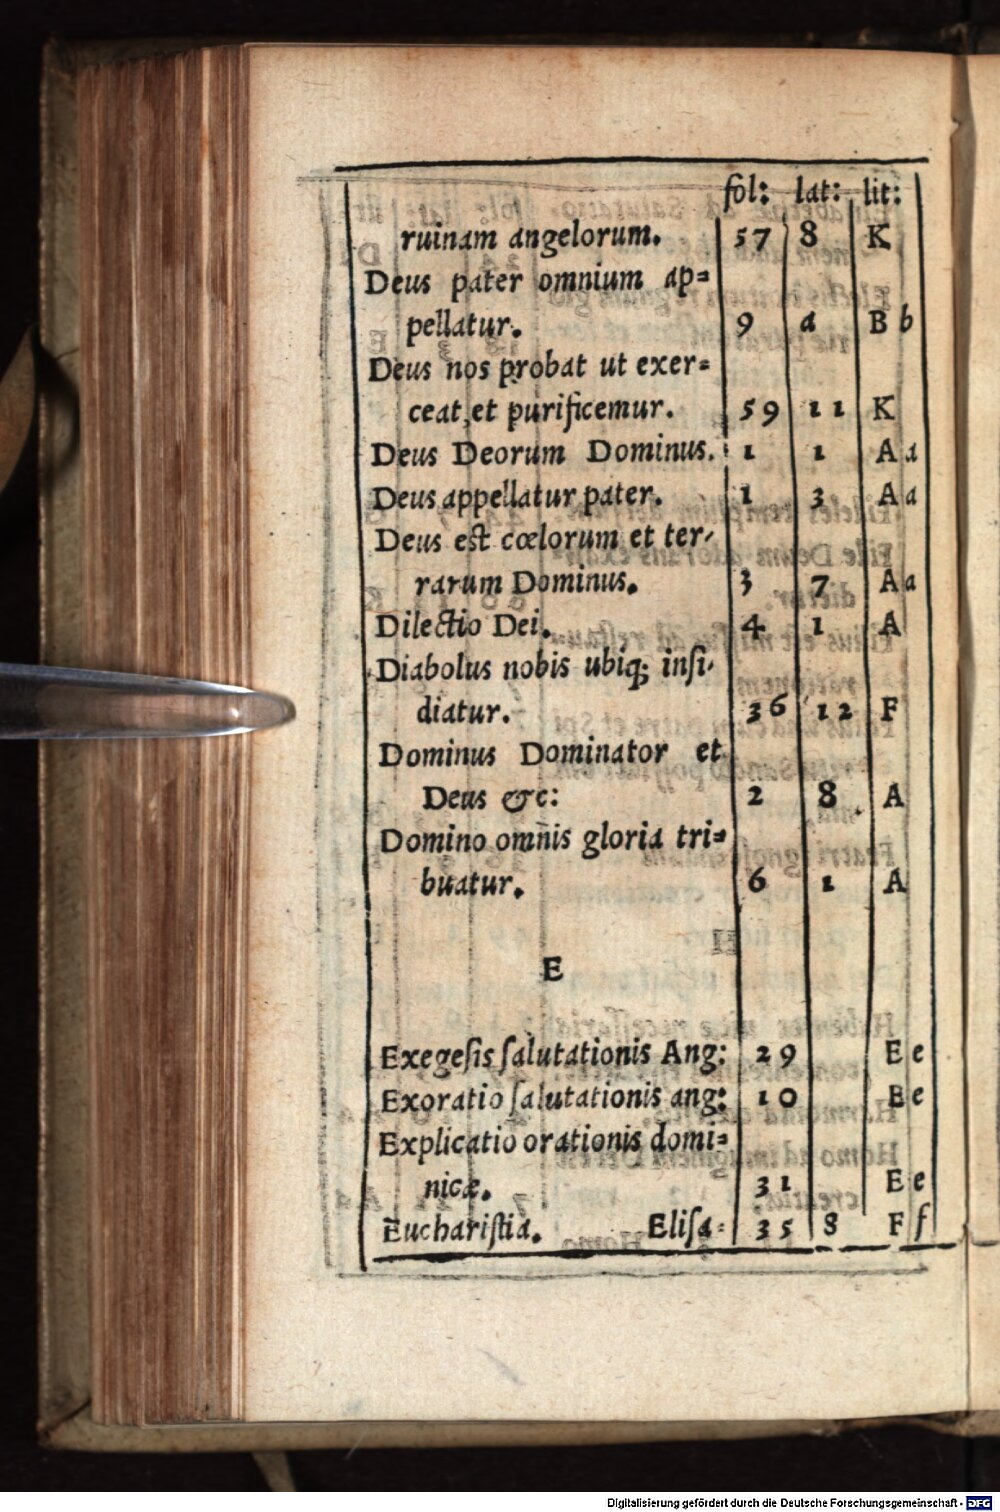 fol: lat: lit:
ruinam angelorum. 57 8 K
Deus pater omnium ap=
pellatur. 9 a B b
Deus nos probat ut exer=
ceat, et purificemur. 59 11 K
Deus Deorum Dominus. 1 1 A a
Deus appellatur pater. 1 3 A a
Deus est cœlorum et ter=
rarum Dominus. 3 7 A a
Dilectio Dei. 4 1 A
Diabolus nobis ubiq; insi=
diatur. 36 12 F
Dominus Dominator et
Deus &c: 2 8 A
Domino omnis gloria tri=
buatur. 6 1 A
E
Exegesis salutationis Ang: 29 E e
Exoratio salutationis ang: 10 B e
Explicatio orationis domi=
nicæ. 31 E e
Eucharistia. Elisa= 35 8 F f
Digitalisierung gefördert durch die Deutsche Forschungsgemeinschaft - DFG